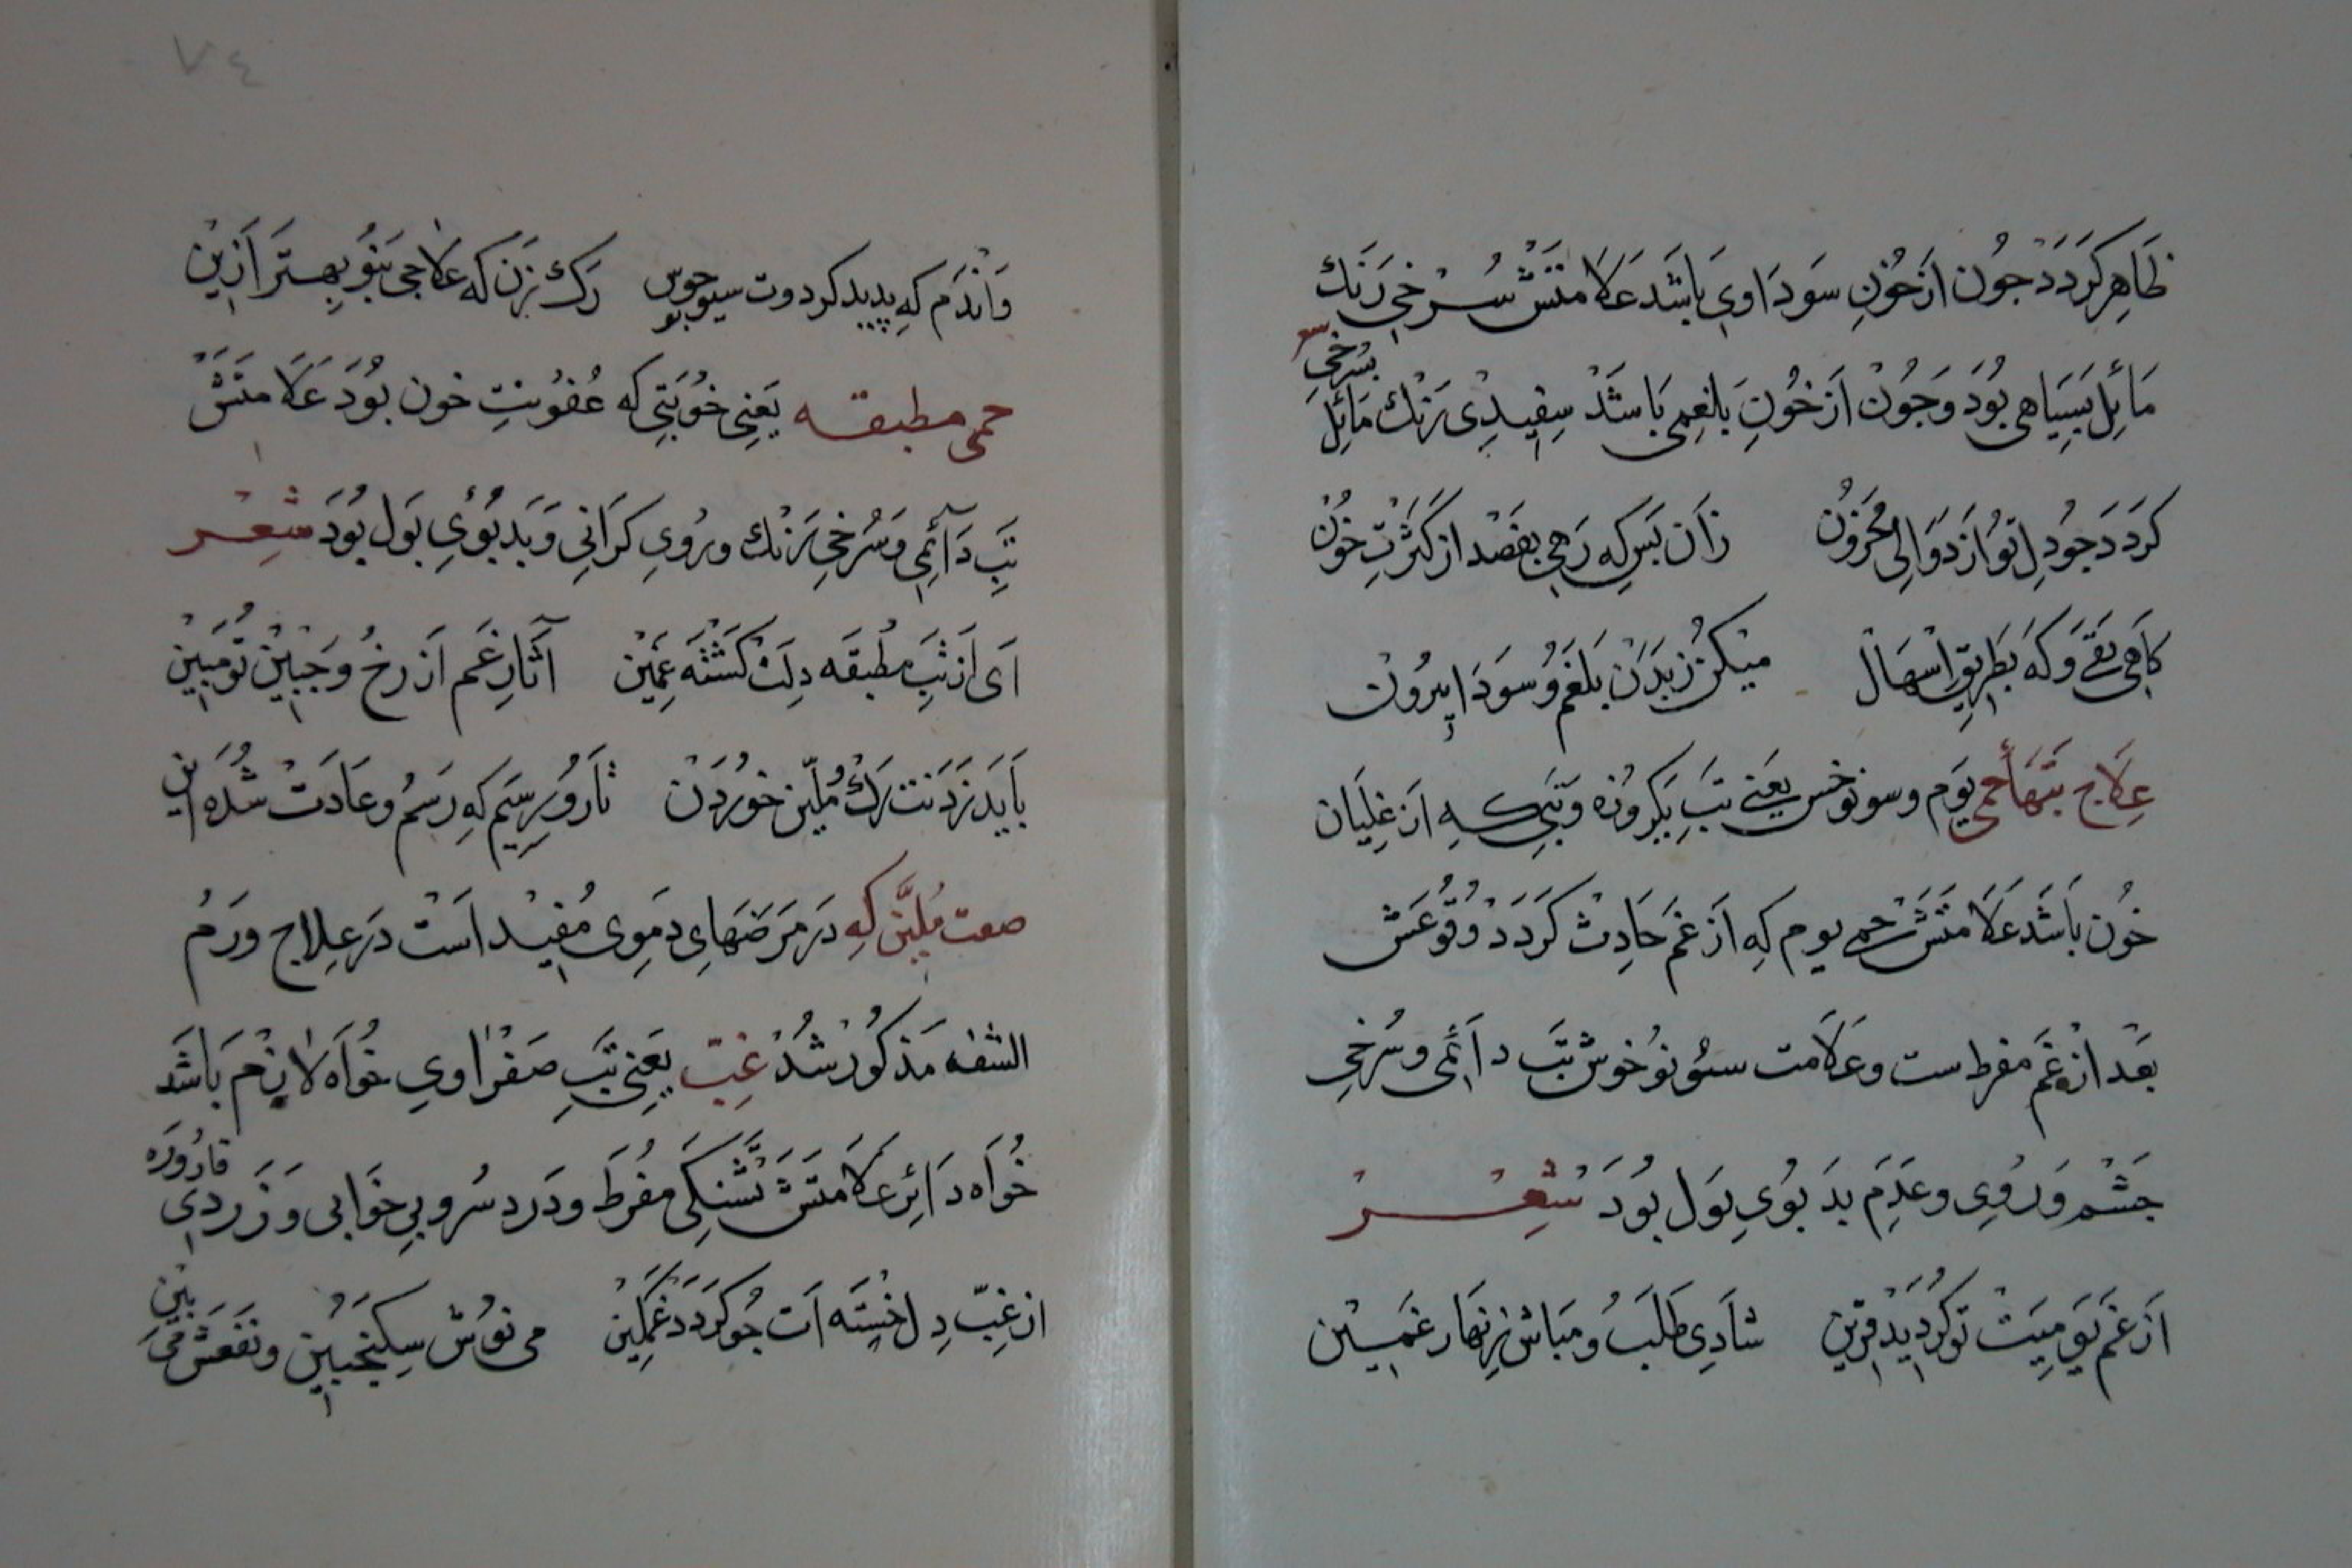 ظَاهِر كَردَدْ جُون ازخُونِ سَودَاوي بَاشَد عَلَامتَشْ سُرْخيِ رَنك
مَائِل بَسِيَاهى بُودَ وَجُونْ اَزخُونِ بَلغمِى بَاشَدْ سِفِيدِى رَنْك مَائِل بسُرخي شعر
كردَدَ جُودِل تُو اَز دَوَالِى مَحزُونْ زَان بَس كِه رَهِي بفَصْد از كَثرْتِ خُونْ
كَاهى بَقَے وَكَه بَطَرِيقِ اسْهَالْ ميْكنْ زبَدَنْ بَلغَم وُ سَودَا بِيرُونْ
عِلَاج تَبْهَا حمى يَوم وسونوخس يعَنے تبِ يَكروُزه وَتبِى كه اَز غلِيَان
خُون بَاشَد عَلَامتَشْ حمے يوم كِه اَز غَم حَادِثْ كَردَدْ وُقُوعَشْ
بَعْد از غَم مفرط ست وعَلَامت سُونُوخوش تَب دَائِمى وسُرْخي
جشْم وَرُوىِ وعَدَم بدَ بُوىِ بَول بُودَ شعِـــرْ
اَز غَم يَومِيَتْ تو كَردِيدْ قرِين شَادِى طَلَبُ ومبَاش زِنهَار غَمِـيـن
٧٤
وَانْدَم كِه پديد كردوت سيوجوس رَك بَزَن كه عَلَاجى بَنوُ بهِتَر اَزين
حمى مطبقه يعَنى خُوبَتِى كه عُفوُنتِ خون بوُدَ عَلَامتَشْ
تَبِ دَآئِمِى وَسُرخىِ رَنْك وروُىِ كَرَانِى وَبَد بوُىِ بَول بوُدَ شعِـر
اَى اَز تَبِ مُطْبقَه دِلَتْ كَشْتَه غَمِينْ آثَارِ غَم اَز رخُ وجَبِينْ تُو مُبِينْ
بَايَد زَدَنَتْ رَكْ وُ مُليّن خوُرْدَنْ تَارَوُ برِسَم كِه رَسْمُ وعَادَتْ شُدَه اين
صعت مُلَيَّن كه دَر مَرَضَهَاىِ دمَوِى مُفِيد اَسْت دَر عِلاج وَرَمُ
الشفه مَذكوُر شُدْ غِبّ يعَنِى تَبِ صَفْرَاوى خُوَاه لَازِم بَاشَد
خُوَاه دَائِر عَلَامتَشْ تَشْنَكى مفْرَط ودَرد سُر وبىِ خَوابى وَزَردىِ قَارُورَه
از غِبّ دِل خستَه اَت جُو كَردَدْ غَمكِينْ مى نُوشْ سِكِنجَبِين ونَفعَشْ مى بين